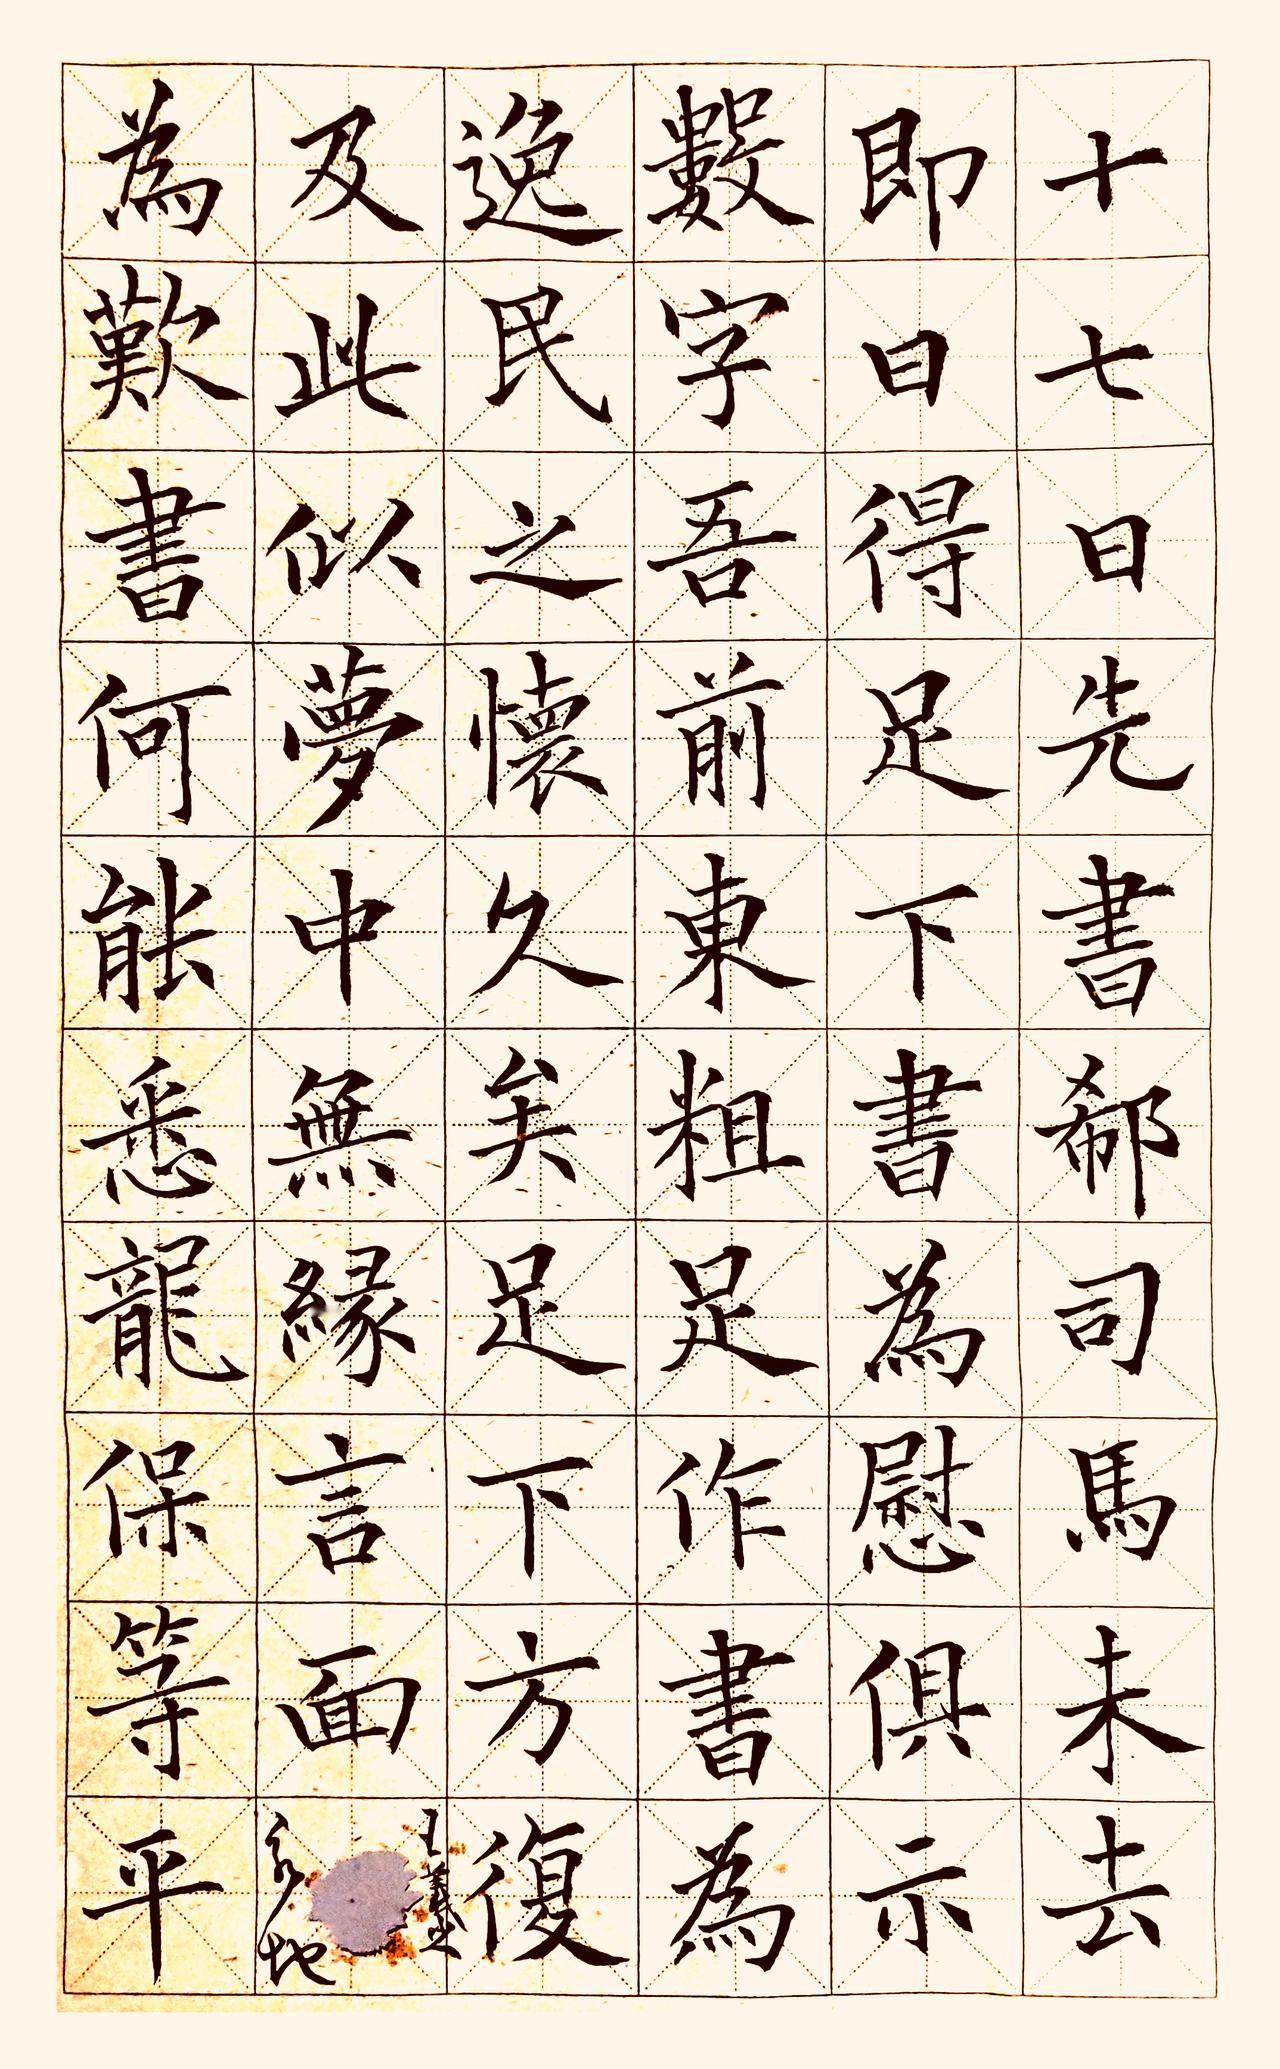 十七日先書郗司馬未去
即日得足下書為慰俱示
數字吾前東粗足作書為
逸民之懷久矣足下方復
及此似夢中無緣言面
王羲之
為歎書何能悉龍保等平